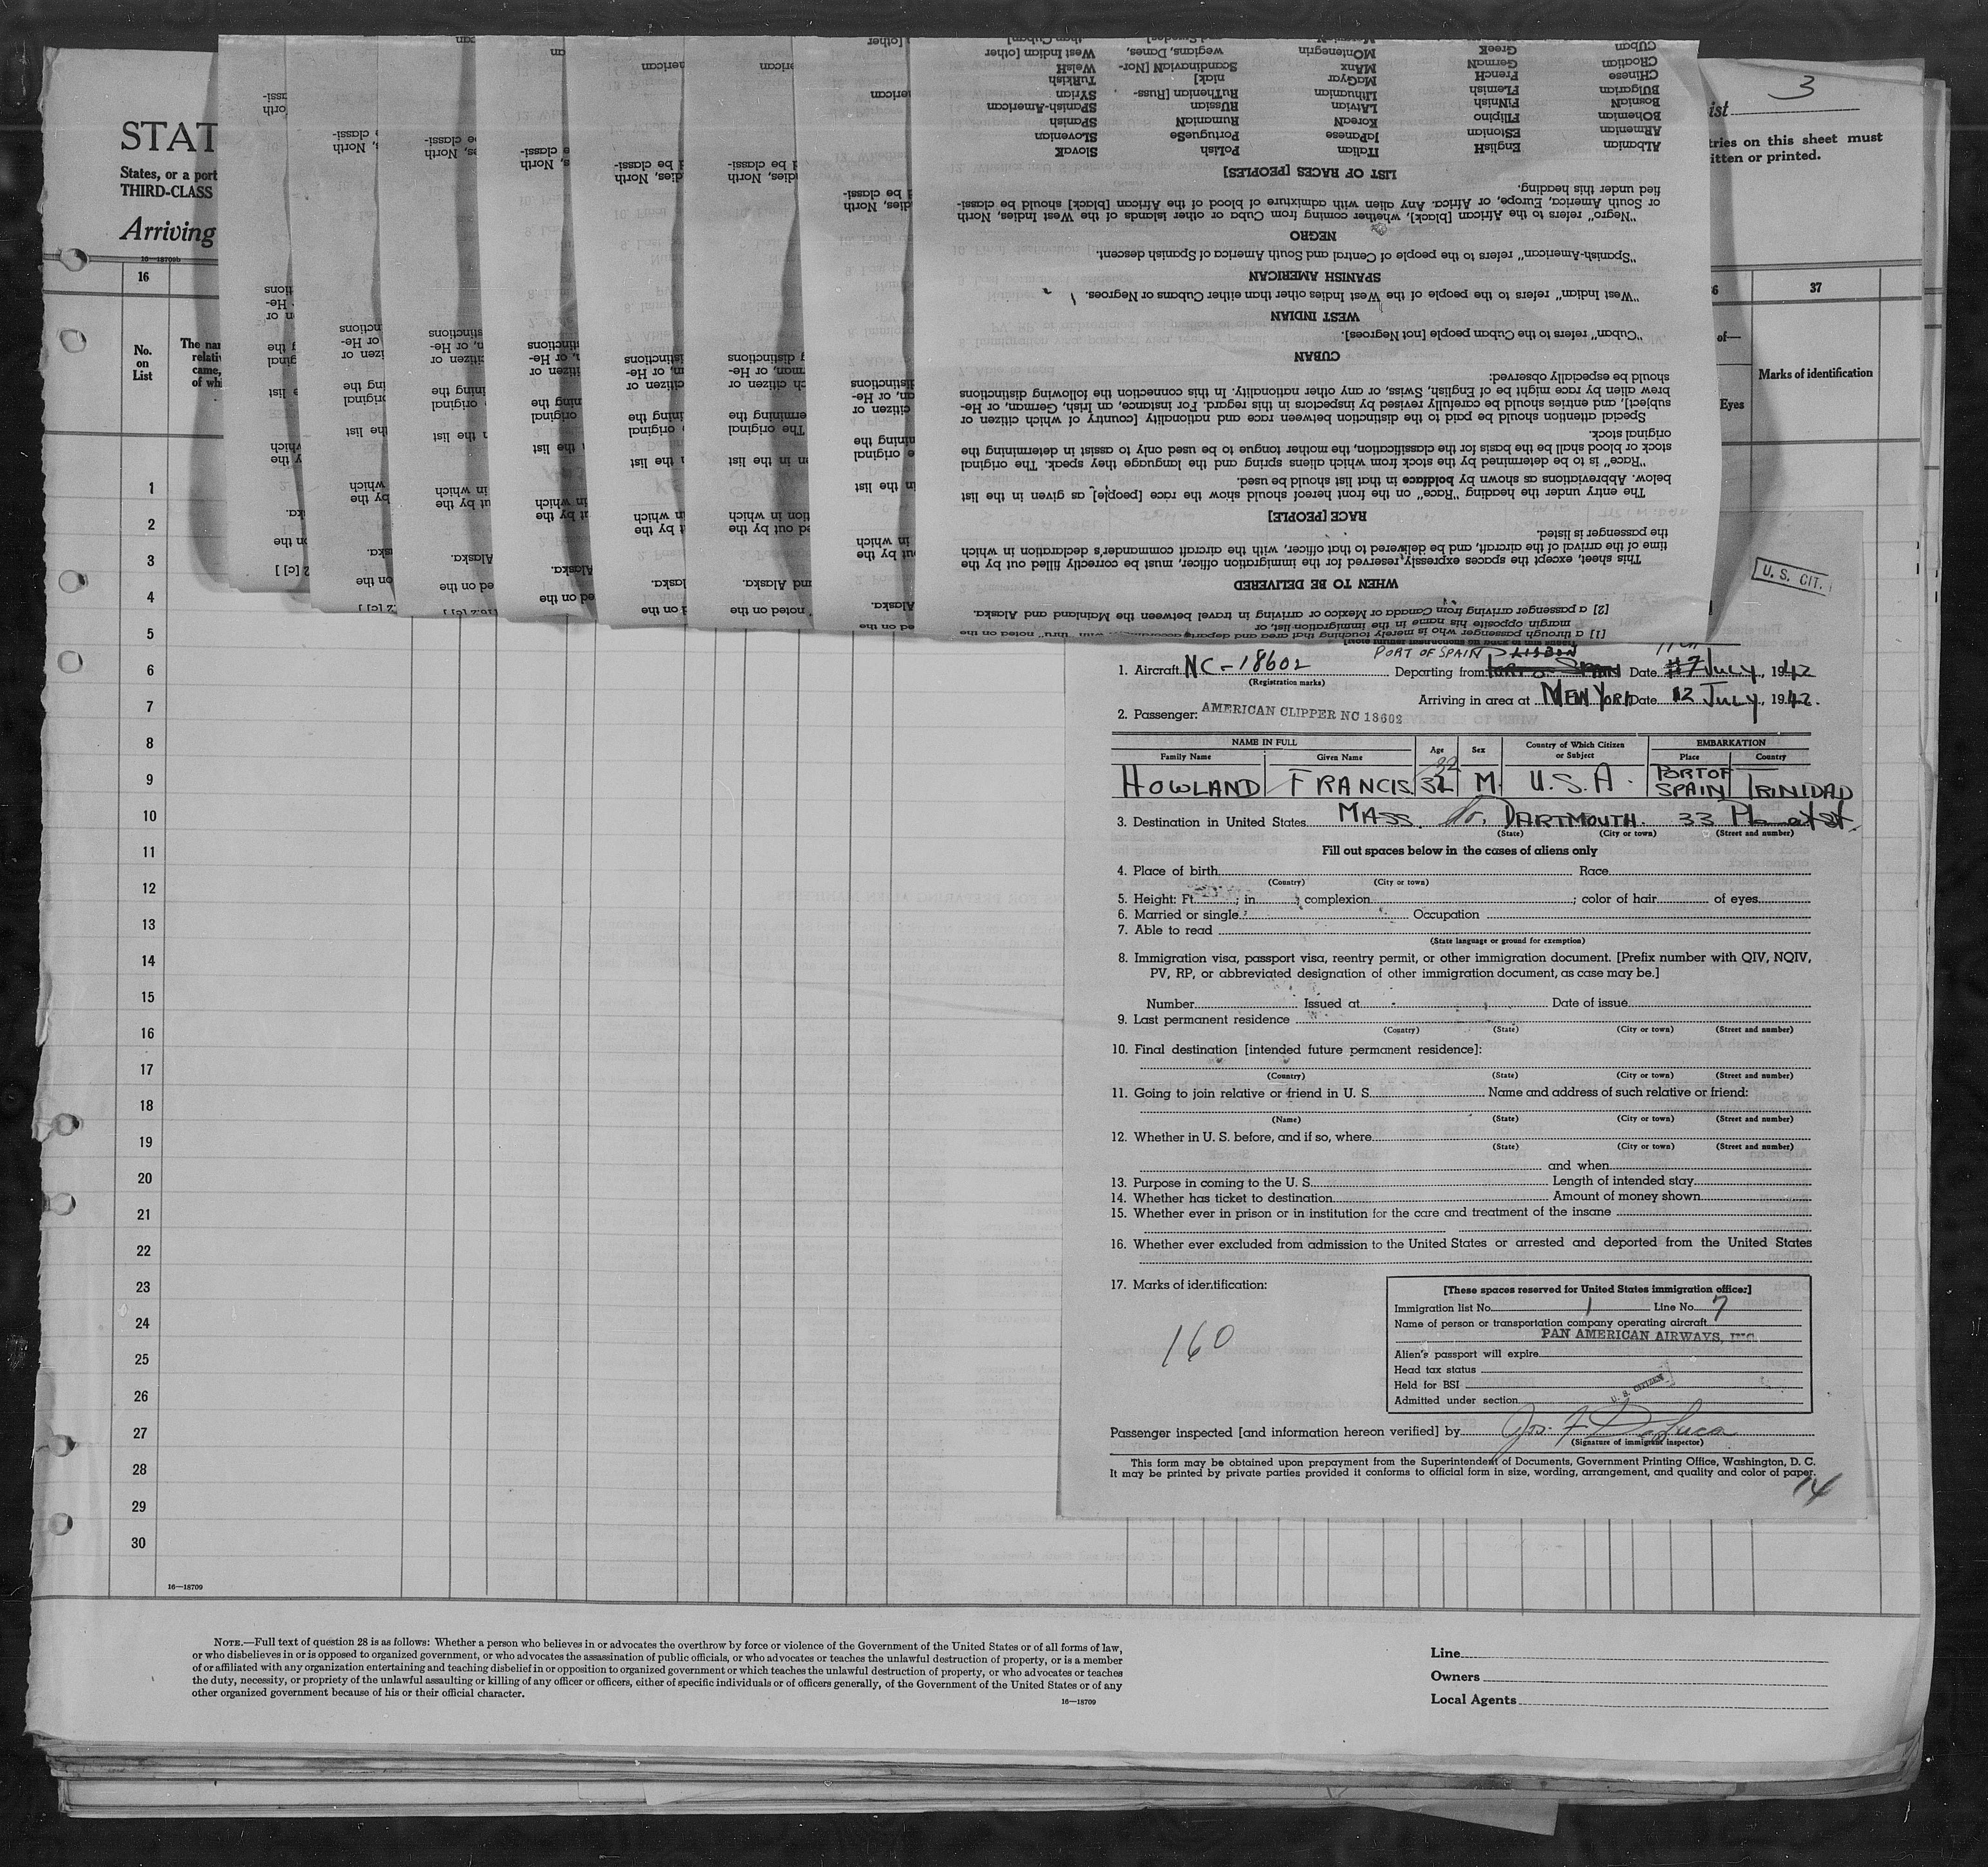 STAT
States, or a port
THIRD-CLASS
Arriving
16—18709b
ist 3
tries on this sheet must
itten or printed.
16
37
No.
on
List
The nar
relativ
came,
of wh
of—
Eyes
Marks of identification
1
2
3
4
5
6
7
8
9
10
11
12
13
14
15
16
17
18
19
20
21
22
23
24
25
26
27
28
29
30
16—18709
[1] a through passenger who is merely touching that area and
margin opposite his name in the immigration list, or
[2] a passenger arriving from Canada or Mexico or arriving in travel between the Mainland and Alaska.
WHEN TO BE DELIVERED
This sheet, except the spaces expressly reserved for the immigration officer, must be correctly filled out by the
time of the arrival of the aircraft, and be delivered to that officer, with the aircraft commander's declaration in which
the passenger is listed.
RACE [PEOPLE]
The entry under the heading "Race" on the front hereof should show the race [people] as given in the list
below. Abbreviations as shown by boldface in that list should be used.
"Race" is to be determined by the stock from which aliens spring and the language they speak. The original
stock or blood shall be the basis for the classification, the mother tongue to be used only to assist in determining the
original stock.
Special attention should be paid to the distinction between race and nationality [country of which citizen or
subject], and entries should be carefully revised by inspectors in this regard. For instance, an Irish, German, or He-
brew alien by race might be of English, Swiss, or any other nationality. In this connection the following distinctions
should be especially observed:
CUBAN
"Cuban" refers to the Cuban people [not Negroes].
WEST INDIAN
"West Indian" refers to the people of the West Indies other than either Cubans or Negroes.
SPANISH AMERICAN
"Spanish-American" refers to the people of Central and South America of Spanish descent.
NEGRO
"Negro" refers to the African [black], whether coming from Cuba or other islands of the West Indies, North
or South America, Europe, or Africa. Any alien with admixture of blood of the African [black] should be classi-
fied under this heading.
LIST OF RACES [PEOPLES]
Albanian EnglisH ITalian PoLish SlovaK
ARmenian EStonian JaPanese PortugueSe SLovenian
BOhemian FIlipino KoreaN RumaniaN SPanish
BosniaN FINnisH LAtvian RUssian SPanish-American
BUlgarian FLemish LIthuanian RuThenian [Russ- SYrian
CHinese FrencH MaGyar niak] TuRkish
CRoatian GermaN MAnx ScandinaviaN [Nor- WelsH
CUban GreeK MOntenegrin wegians, Danes, West Indian [other
and Swedes] than Cuban]
U. S. CIT.
PORT OF SPAIN LISBON
1. Aircraft NC-18602 Departing from Date 7 July, 1942
(Registration marks)
Arriving in area at NEW YORK Date 12 July, 1942.
2. Passenger: AMERICAN CLIPPER NC 18602
NAME IN FULL Age Sex Country of Which Citizen or Subject EMBARKATION
Family Name Given Name Place Country
32
HOWLAND FRANCIS M. U.S.A. PORT OF SPAIN TRINIDAD
3. Destination in United States MASS. So. DARTMOUTH. 33 st.
(State) (City or town) (Street and number)
Fill out spaces below in the cases of aliens only
4. Place of birth Race
(Country) (City or town)
5. Height: Ft. ; in. ; complexion ; color of hair of eyes
6. Married or single Occupation
7. Able to read
(State language or ground for exemption)
8. Immigration visa, passport visa, reentry permit, or other immigration document. [Prefix number with QIV, NQIV,
PV, RP, or abbreviated designation of other immigration document, as case may be.]
Number Issued at Date of issue
9. Last permanent residence
(Country) (State) (City or town) (Street and number)
10. Final destination [intended future permanent residence]:
(Country) (State) (City or town) (Street and number)
11. Going to join relative or friend in U. S. Name and address of such relative or friend:
(Name) (State) (City or town) (Street and number)
12. Whether in U. S. before, and if so, where
(State) (City or town) (Street and number)
and when
13. Purpose in coming to the U. S. Length of intended stay
14. Whether has ticket to destination Amount of money shown
15. Whether ever in prison or in institution for the care and treatment of the insane
16. Whether ever excluded from admission to the United States or arrested and deported from the United States
17. Marks of identification:
160
[These spaces reserved for United States immigration officer]
Immigration list No. 1 Line No. 7
Name of person or transportation company operating aircraft
PAN AMERICAN AIRWAYS, INC.
Alien's passport will expire
Head tax status
Held for BSI
Admitted under section U. S. CITIZEN
Passenger inspected [and information hereon verified] by Jos. F DeLuca
(Signature of immigrant inspector)
This form may be obtained upon prepayment from the Superintendent of Documents, Government Printing Office, Washington, D. C.
It may be printed by private parties provided it conforms to official form in size, wording, arrangement, and quality and color of paper.
14
NOTE.—Full text of question 28 is as follows: Whether a person who believes in or advocates the overthrow by force or violence of the Government of the United States or of all forms of law,
or who disbelieves in or is opposed to organized government, or who advocates the assassination of public officials, or who advocates or teaches the unlawful destruction of property, or is a member
of or affiliated with any organization entertaining and teaching disbelief in or opposition to organized government or which teaches the unlawful destruction of property, or who advocates or teaches
the duty, necessity, or propriety of the unlawful assaulting or killing of any officer or officers, either of specific individuals or of officers generally, of the Government of the United States or of any
other organized government because of his or their official character.
16—18709
Line
Owners
Local Agents